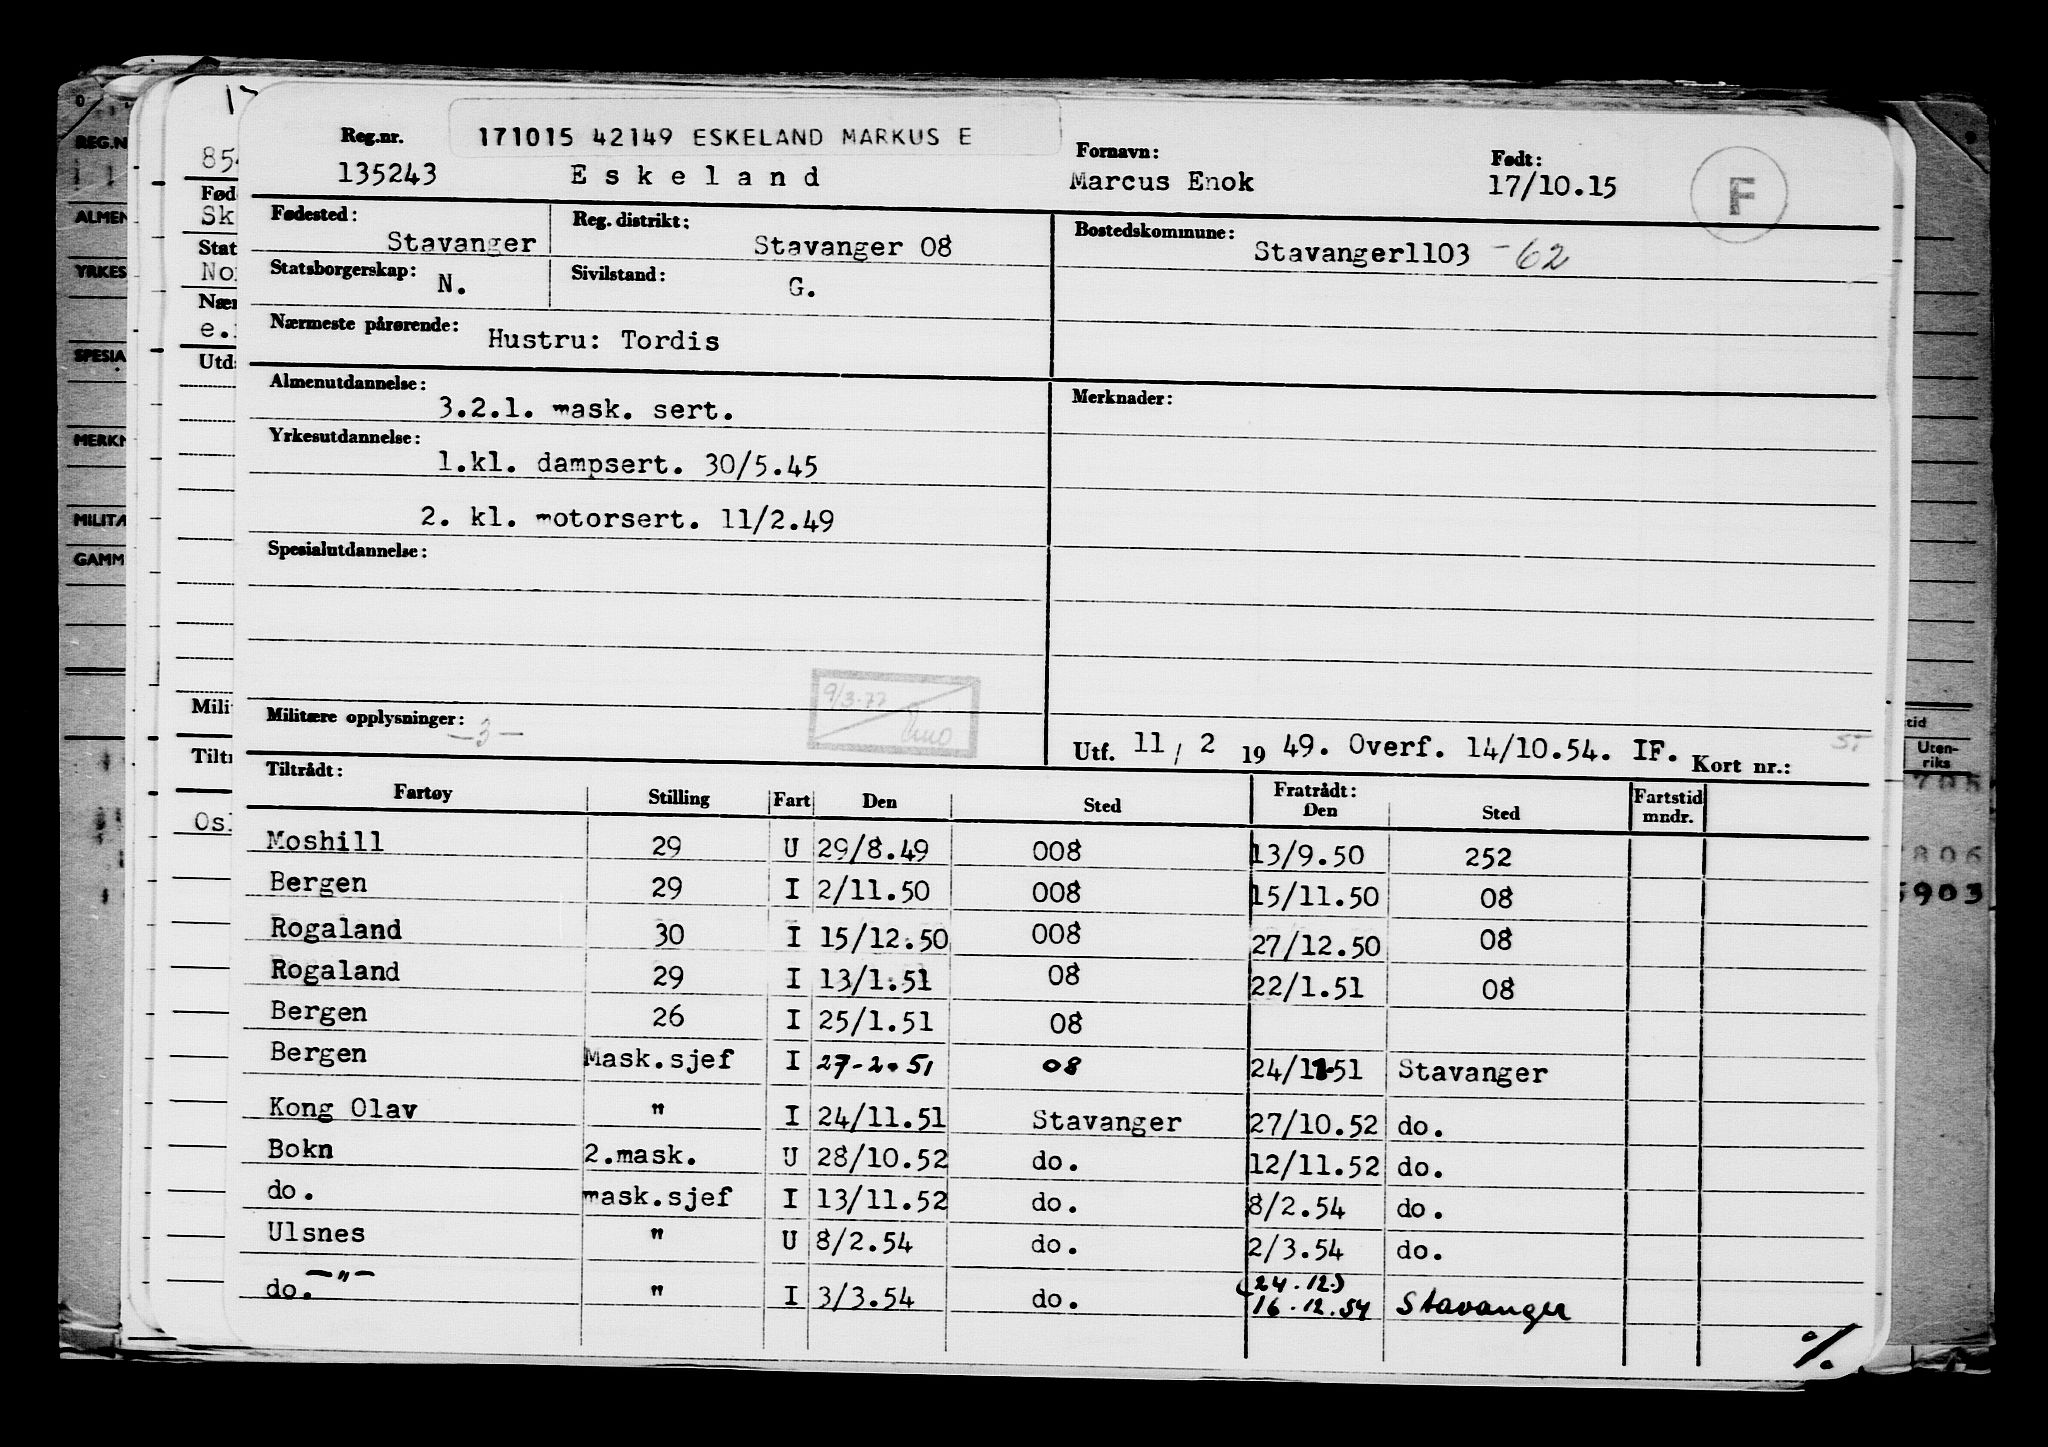 171015 42149 ESKELAND MARKUS E
Reg.nr. Fornavn: Født:
135243 Eskeland Marcus Enok 17/10.15 F
Fødested: Stavanger Reg. distrikt: Stavanger 08 Bostedskommune: Stavanger1103 -62
Statsborgerskap: N. Sivilstand: G.
Nærmeste pårørende: Hustru: Tordis
Almenutdannelse: Merknader:
3.2.1. mask. sert.
Yrkesutdannelse:
1.kl. dampsert. 30/5.45
2. kl. motorsert. 11/2.49
Spesialutdannelse:
9/3-77
Militære opplysninger: -3-
Utf. 11/2 1949. Overf. 14/10.54. IF. Kort nr.:
Tiltrådt: Fratrådt:
Fartøy Stilling Fart Den Sted Den Sted Fartstid mndr.
Moshill 29 U 29/8.49 008 13/9.50 252
Bergen 29 I 2/11.50 008 15/11.50 08
Rogaland 30 I 15/12.50 008 27/12.50 08
Rogaland 29 I 13/1.51 08 22/1.51 08
Bergen 26 I 25/1.51 08
Bergen Mask.sjef I 27-2.51 08 24/11.51 Stavanger
Kong Olav " I 24/11.51 Stavanger 27/10.52 do.
Bokn 2.mask. U 28/10.52 do. 12/11.52 do.
do. mask.sjef I 13/11.52 do. 8/2.54 do.
Ulsnes " U 8/2.54 do. 2/3.54 do.
-"- (24.12)
do. " I 3/3.54 do. 16.12.54 Stavanger
%.